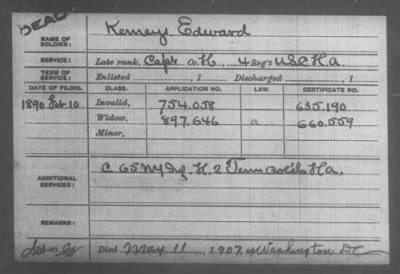 DEAD
NAME OF SOLDIER: Kerneys Edward
SERVICE: Late rank, Capt Co. H, 4 Reg't U S C H a.
TERM OF SERVICE: Enlisted , 1 Discharged , 1
DATE OF FILING. CLASS. APPLICATION NO. LAW. CERTIFICATE NO.
1890 10 Invalid, 754.058 635.190
Widow, 897.646 a 660.559
Minor,
ADDITIONAL SERVICES: C 65 NY Inf. H. 2 Tenn H a.
REMARKS:
Died May 11, 1907, at Washington DC